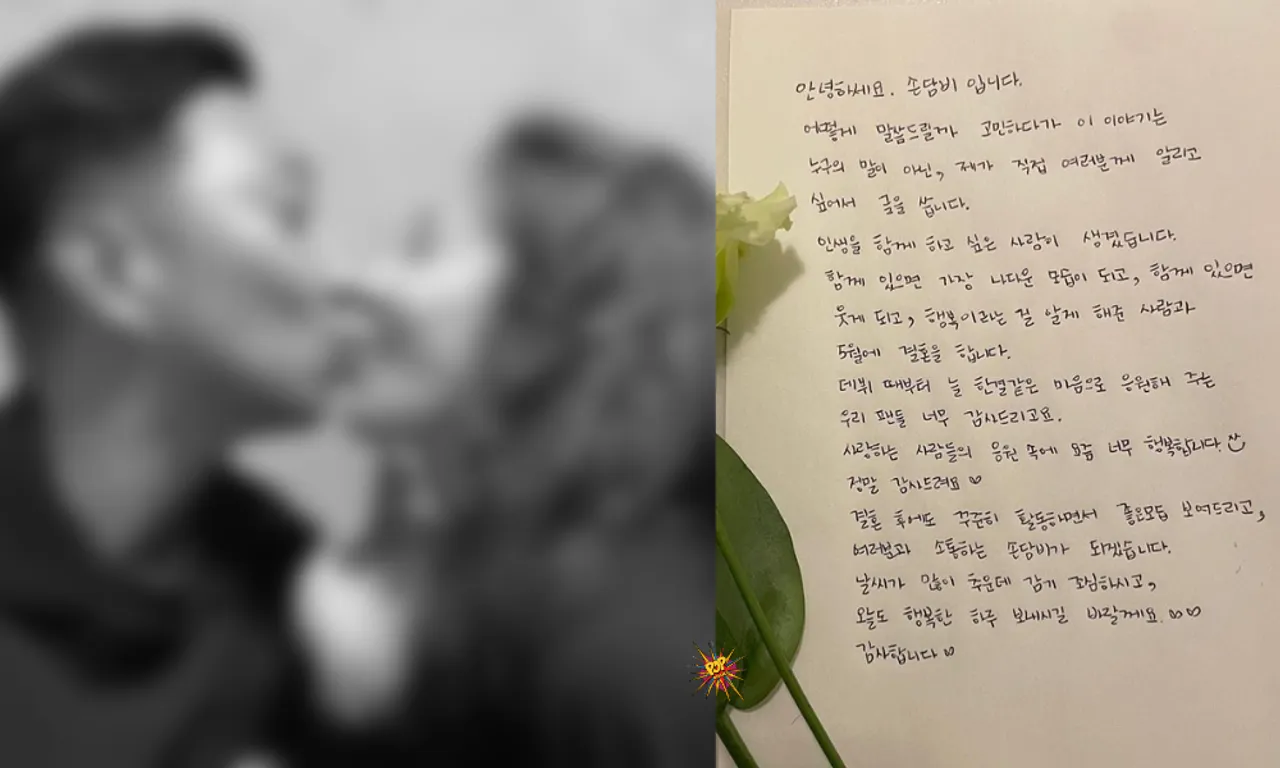 안녕하세요. 손담비 입니다.
어떻게 말씀드릴까 고민하다가 이 이야기는
누구의 말이 아닌, 제가 직접 여러분께 알리고
싶어서 글을 씁니다.
인생을 함께 하고 싶은 사람이 생겼습니다.
함께 있으면 가장 나다운 모습이 되고, 함께 있으면
웃게 되고, 행복이라는 걸 알게 해준 사람과
5월에 결혼을 합니다.
데뷔 때부터 늘 한결같은 마음으로 응원해 주는
우리 팬들 너무 감사드리고요.
사랑하는 사람들의 응원 속에 요즘 너무 행복합니다.
정말 감사드려요 ♡
결혼 후에도 꾸준히 활동하면서 좋은모습 보여드리고,
여러분과 소통하는 손담비가 되겠습니다.
날씨가 많이 추운데 감기 조심하시고,
오늘도 행복한 하루 보내시길 바랄께요 ♡♡
감사합니다 ♡
POP